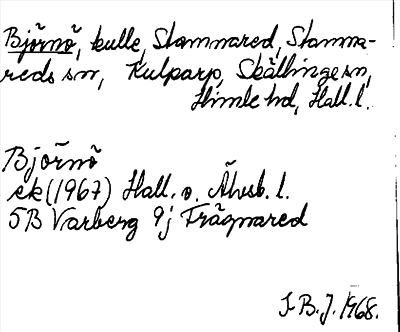 Björnö, kulle, Stammared, Stamma-
reds sn, Kulparp, Skällinge sn,
Himle hd, Hall. l.
Björnö
ek (1967) Hall. o. Älvsb. l.
5B Varberg 9j Frägnared
F. B. J. 1968.